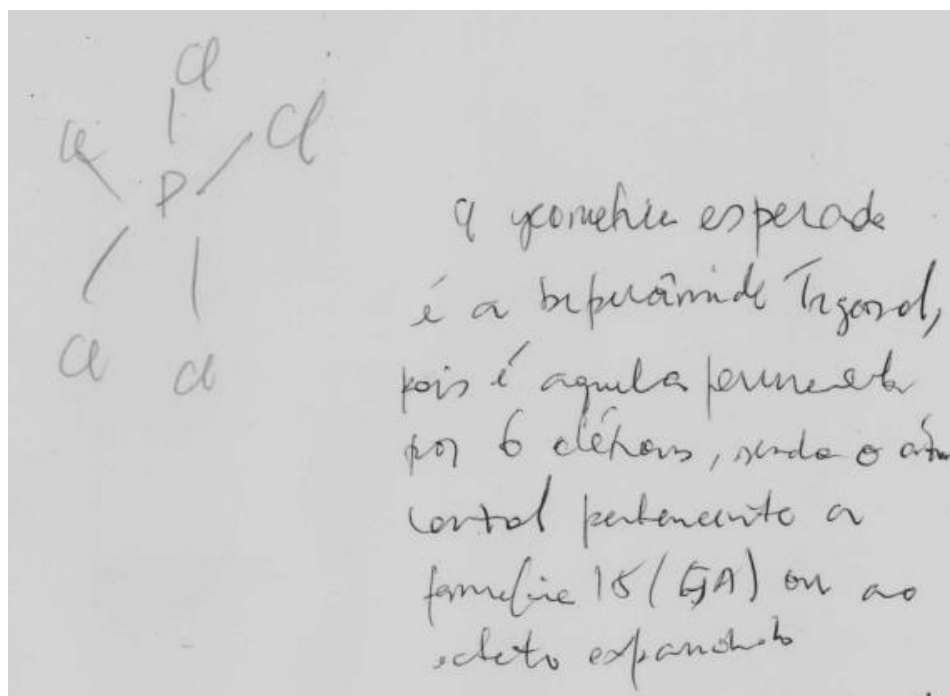 Cl
Cl Cl
P
Cl Cl
a geometria esperada
é a bipirâmide Trigonal,
pois é aquela
por 6 elétrons, sendo o
central pertencente a
família 15 (5A) ou ao
octeto expandido